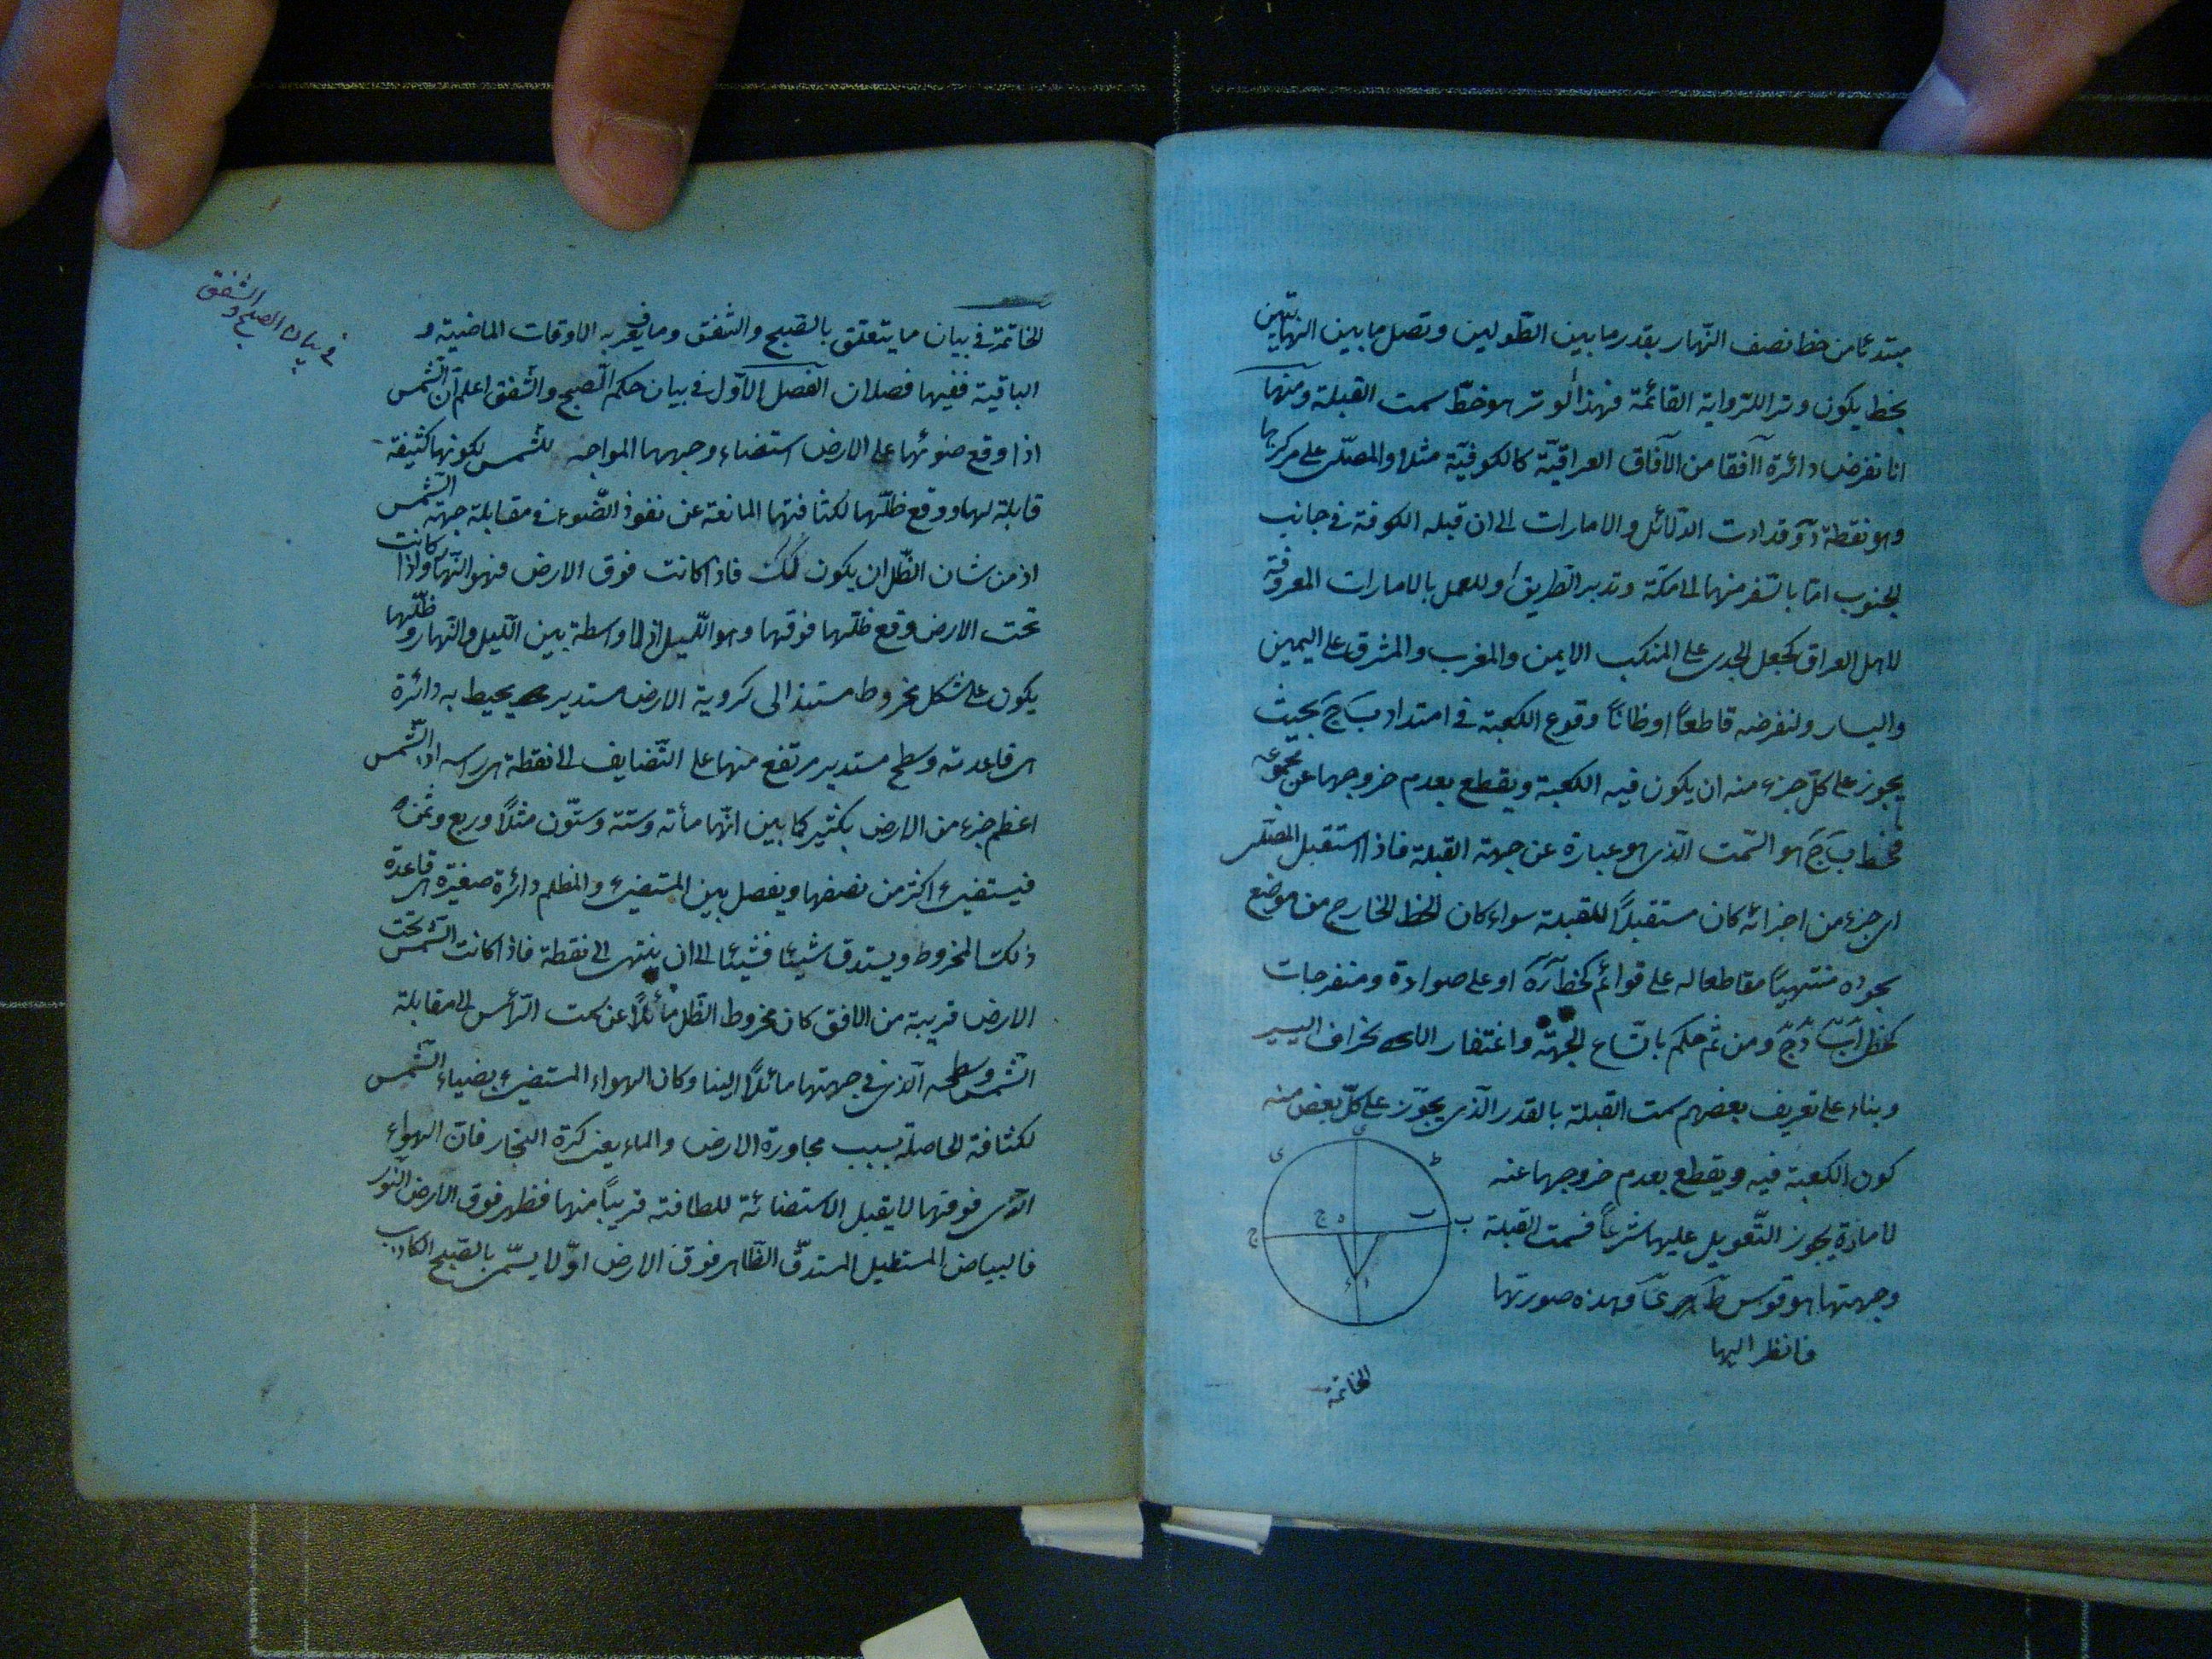 مبتدئا من خط نصف النّهار بقدر ما بين الطّولين وتصل ما بين النهايتين
بخط يكون وتر اللزواية القائمة فهذا الوتر هو خطّ سمت القبلة ومنها
انا نفرض دائرة افقا من الآفاق العراقيّة كالكوفيّة مثلا والمصلّى على مركزها
وهو نقطة د وقد ادت الدّلائل والامارات الى ان قبله الكوفة في جانب
الجنوب امّا بالسّفر منها الى مكّة وتدبر الطريق او للعمل بالامارات المعروفة
لاهل العراق كجعل الجدى على المنكب الايمن والمغرب والمشرق على اليمين
واليسار ولنفرضه قاطعاً او ظانّاً وقوع الكعبة في امتداد ب ج بحيث
يجوز على كلّ جزء منه ان يكون فيه الكعبة ويقطع بعدم خروجها عن مجموعه
فخط ب ج هو السّمت الّذى هو عبارة عن جهة القبلة فاذا استقبل المصلّى
اى جزء من اجزائه كان مستقبلاً للقبلة سواء كان الخط الخارج من موضع
سجوده منتهيًا مقاطعا له على قوائم كخط ا ر ه او على حوادة ومنفرجات
كخط ا ب د ج ومن ثم حكم باتّساع الجهة واغتفار الانحراف اليسير
وبناء على تعريف بعضهم سمت القبلة بالقدر الّذى يجوّز على كلّ بعض منه
كون الكعبة فيه ويقطع بعدم خروجها عنه
لامارة يجوز التّعويل عليها شرعاً فسمت القبلة
وجهتها هو قوس ط ى وهذه صورتها
فانظر اليها
ى
ط
ب
ج
د
الخاتمة
في بيان الصبح والشفق
الخاتمة في بيان ما يتعلّق بالصّبح والشّفق وما يعرف به الاوقات الماضية و
الباقية ففيها فصلان الفصل الاّول في بيان حكم الصّبح والشّفق اعلم انّ الشّمس
اذا وقع ضوئها على الارض استضاء وجهها المواجه للشّمس لكونها كثيفة
قابلة لها ووقع ظلّها لكثافتها المانعة عن نفوذ الضّوء في مقابلة جهة الشّمس
اذ من شان الظّل ان يكون كك فاذا كانت فوق الارض فهو النّهار واذا كانت
تحت الارض وقع ظلّها فوقها وهو اللّيل اذ لا واسطة بين اللّيل والنّهار وظلّها
يكون على شكل مخروط مستند الى كروية الارض مستدير يحيط به دائرة
هى قاعدته وسطح مستدير مرتفع منها على التّضايف الى نقطة هى راسه اذ الشّمس
اعظم جزء من الارض بكثير كما بين انّها مأته وستة وستّون مثلاً وربع وثمن
فيستضئ اكثر من نصفها ويفصل بين المستضئ والمظلم دائرة صغيرة هى قاعدة
ذلك المخروط ويستدق شيئا فشيئا الى ان ينتهى الى نقطة فاذا كانت الشّمس تحت
الارض قريبة من الافق كان مخروط الظّل مائلاً عن سمت الرّأس الى مقابلة
الشّمس وسطحه الّذى في جهتها مائلاً الينا وكان الهواء المستضئ بضياء الشّمس
لكثافة الحاصلة بسبب مجاورة الارض والماء يعنى كرة البخار فانّ الهواء
الذى فوقها لا يقبل الاستضائة للطافته قريباً منها فظهر فوق الارض النّور
فالبياض المستطيل المستدقّ الظّاهر فوق الارض اوّلا يسمّى بالصّبح الكاذب